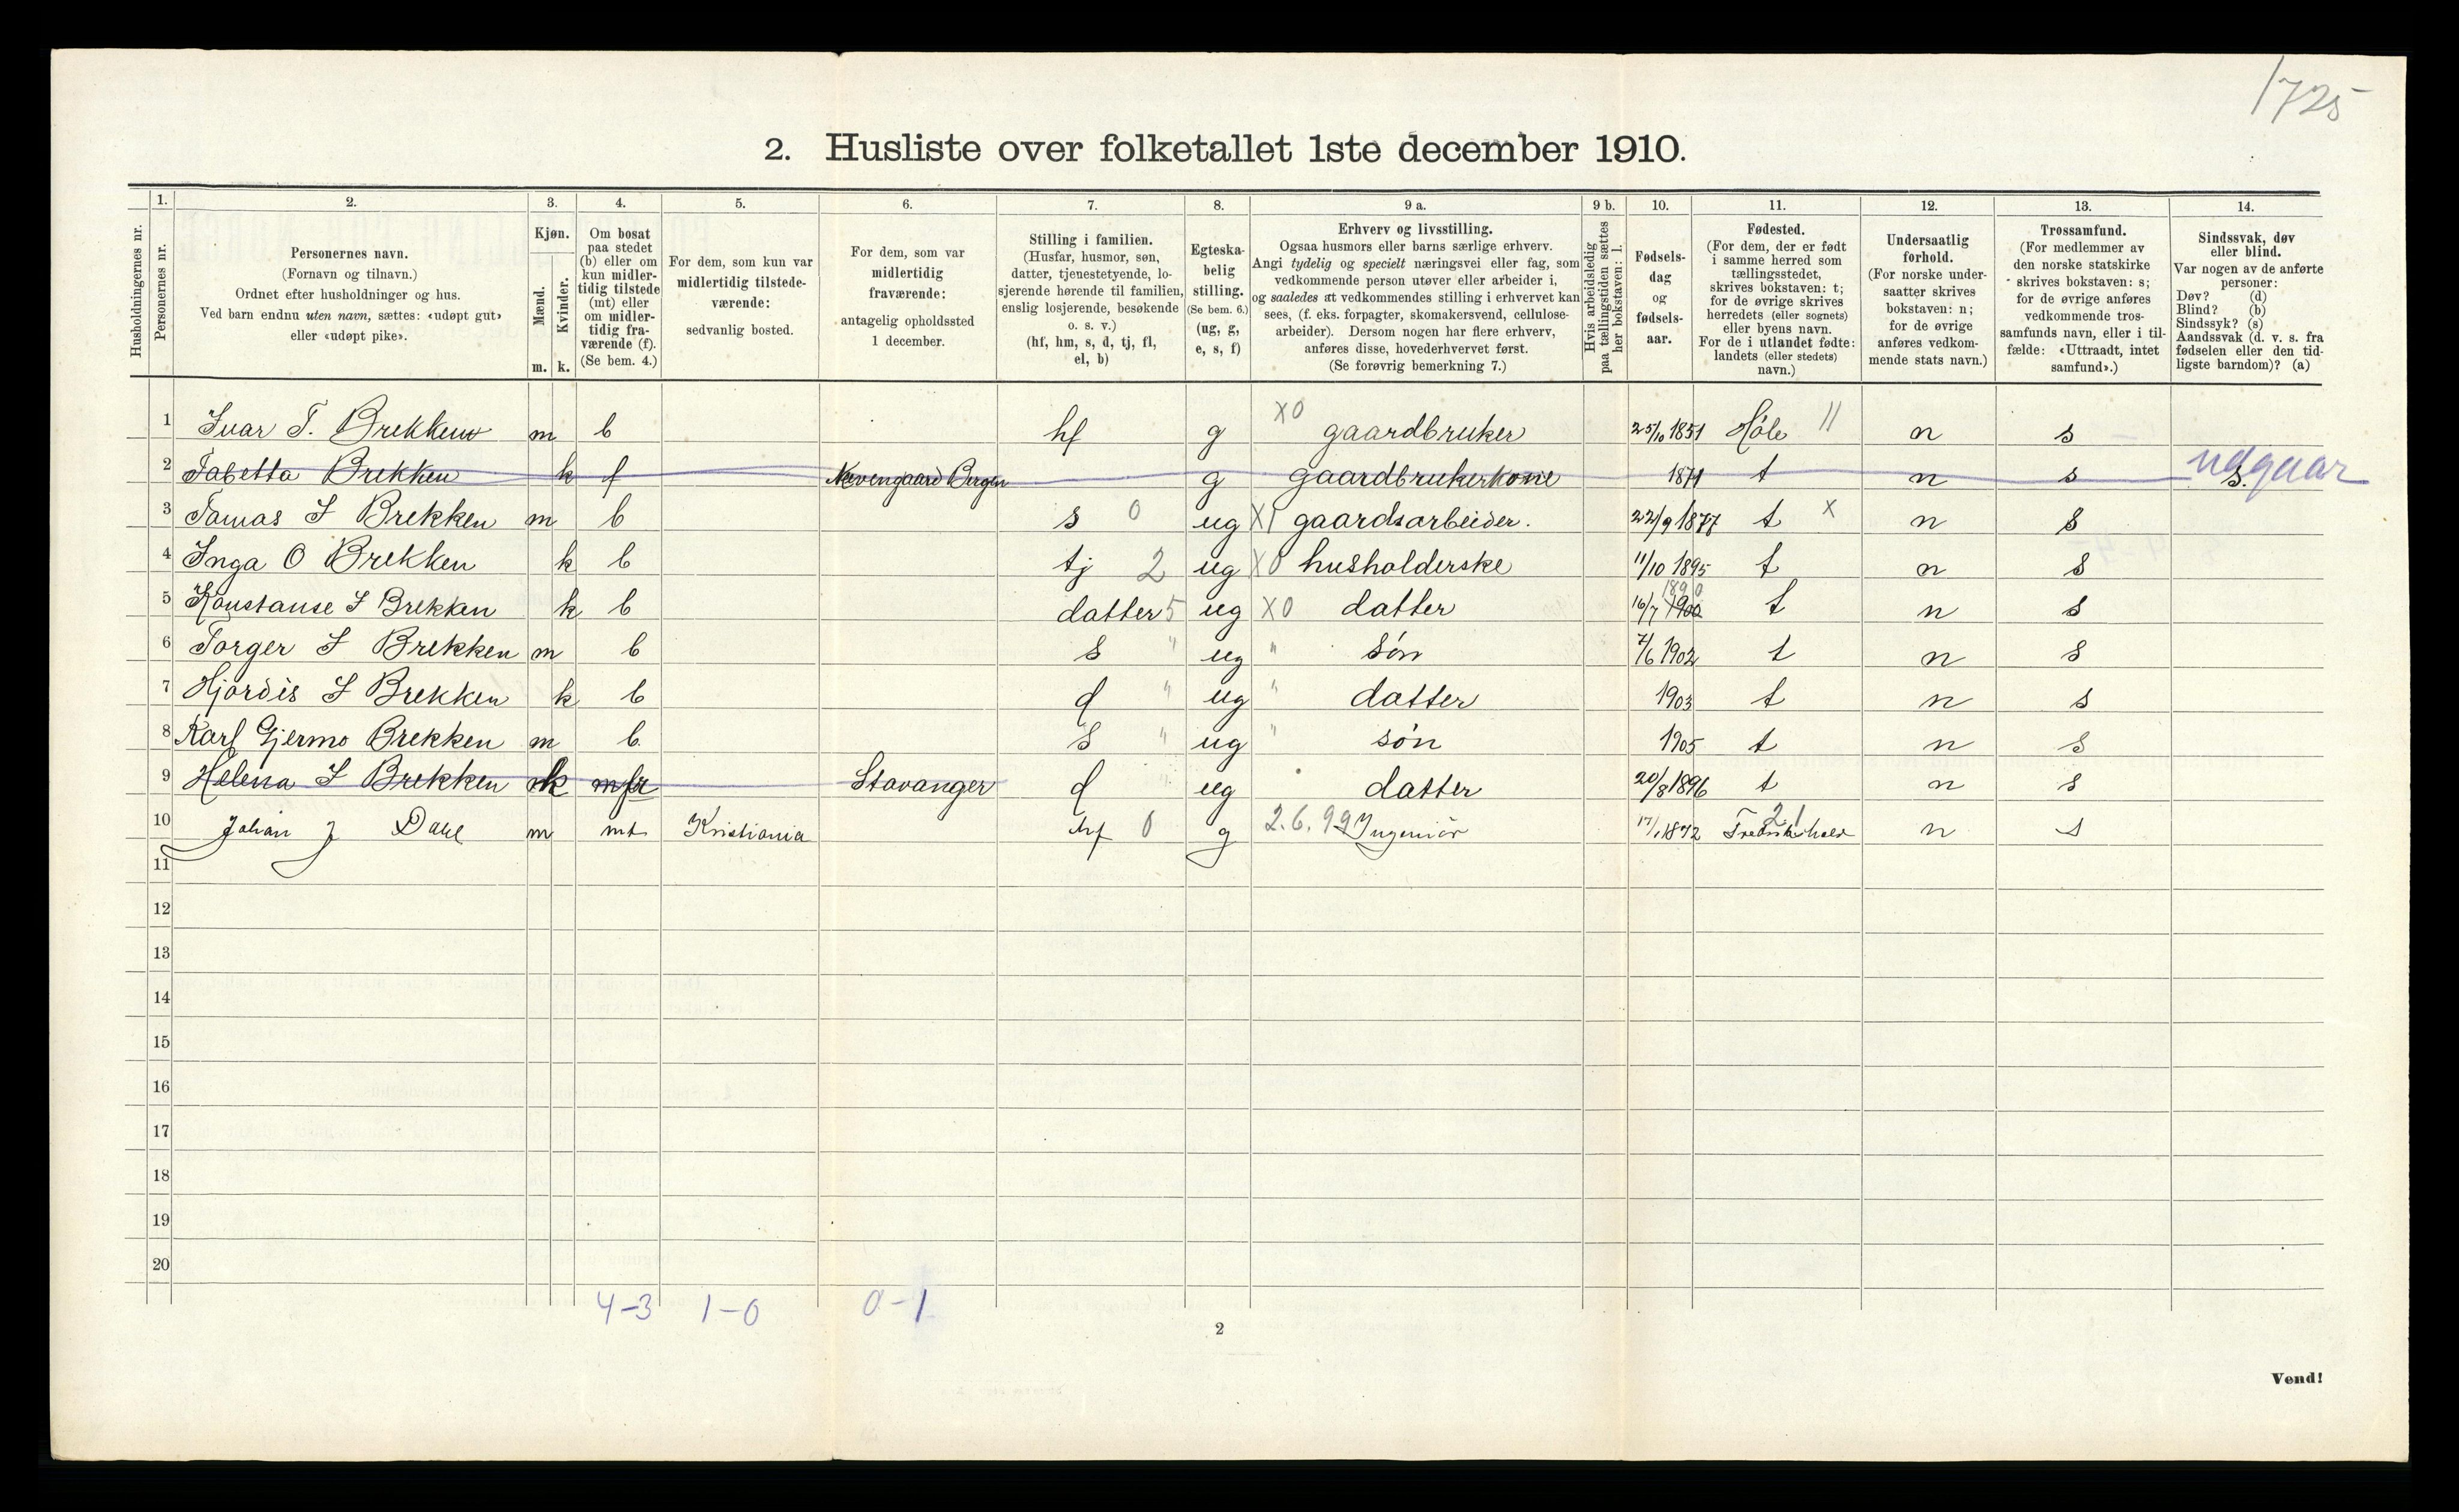 1725
2. Husliste over folketallet 1ste december 1910.
Husholdningernes nr.
1. Personernes nr.
2. Personernes navn.
(Fornavn og tilnavn.)
Ordnet efter husholdninger og hus.
Ved barn endnu uten navn, sættes: «udøpt gut»
eller «udøpt pike».
3. Kjøn.
Mænd. m.
Kvinder. k.
4. Om bosat
paa stedet
(b) eller om
kun midler-
tidig tilstede
(mt) eller
om midler-
tidig fra-
værende (f).
(Se bem. 4.)
5. For dem, som kun var
midlertidig tilstede-
værende:
sedvanlig bosted.
6. For dem, som var
midlertidig
fraværende:
antagelig opholdssted
1 december.
7. Stilling i familien.
(Husfar, husmor, søn,
datter, tjenestetyende, lo-
sjerende hørende til familien,
enslig losjerende, besøkende
o. s. v.)
(hf, hm, s, d, tj, fl,
el, b)
8. Egteska-
belig
stilling.
(Se bem. 6.)
(ug, g,
e, s, f)
9 a. Erhverv og livsstilling.
Ogsaa husmors eller barns særlige erhverv.
Angi tydelig og specielt næringsvei eller fag, som
vedkommende person utøver eller arbeider i,
og saaledes at vedkommendes stilling i erhvervet kan
sees, (f. eks. forpagter, skomakersvend, cellulose-
arbeider). Dersom nogen har flere erhverv,
anføres disse, hovederhvervet først.
(Se forøvrig bemerkning 7.)
9 b. Hvis arbeidsledig
paa tællingstiden sættes
her bokstaven: l.
10. Fødsels-
dag
og
fødsels-
aar.
11. Fødested.
(For dem, der er født
i samme herred som
tællingsstedet,
skrives bokstaven: t;
for de øvrige skrives
herredets (eller sognets)
eller byens navn.
For de i utlandet fødte:
landets (eller stedets)
navn.)
12. Undersaatlig
forhold.
(For norske under-
saatter skrives
bokstaven: n;
for de øvrige
anføres vedkom-
mende stats navn.)
13. Trossamfund.
(For medlemmer av
den norske statskirke
skrives bokstaven: s;
for de øvrige anføres
vedkommende tros-
samfunds navn, eller i til-
fælde: «Uttraadt, intet
samfund».)
14. Sindssvak, døv
eller blind.
Var nogen av de anførte
personer:
Døv? (d)
Blind? (b)
Sindssyk? (s)
Aandssvak (d. v. s. fra
fødselen eller den tid-
ligste barndom)? (a)
1 Ivar T. Brekken m b hf g X0 gaardbruker 25/10 1851 Høle 11 n s
2 Tabetta Brekken k f Bergen g gaardbrukerkone 1871 t n s s. udgaar
3 Tomas I Brekken m b s 0 ug X1 gaardsarbeider. 22/9 1877 t x n s
4 Inga O Brekken k b tj 2 ug X0 husholderske 11/10 1895 t n s
5 Konstanse I Brekken k b datter 5 ug X0 datter 16/7 1900 1890 t n s
6 Torger I Brekken m b s " ug " søn 7/6 1902 t n s
7 Hjørdis I Brekken k b d " ug " datter 1903 t n s
8 Karl Gjermo Brekken m b s " ug " søn 1905 t n s
9 Helena I Brekken k Stavanger d " ug datter 20/8 1896 t n s
10 Johan J Dahl m mt Kristiania hf 0 g 2.6.99 Ingeniør 17/1 1872 Fredrikshald 21 n s
11
12
13
14
15
16
17
18
19
20
4-3 1-0 0-1
2
Vend!